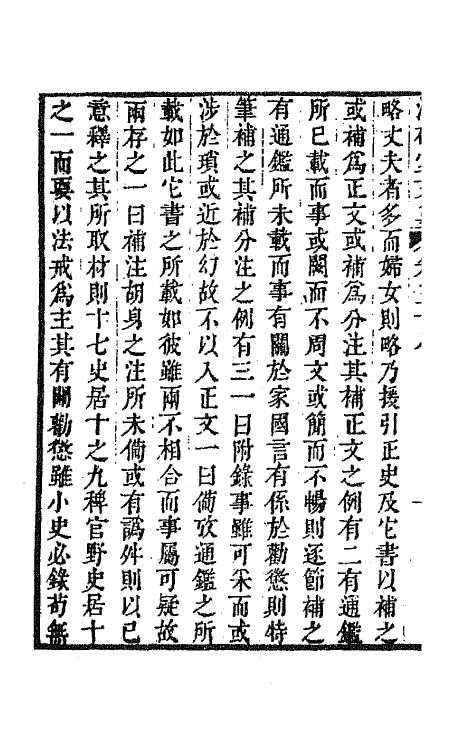 略丈夫者多而婦女則略乃援引正史及它書以補之
或補爲正文或補爲分注其補正文之例有二有通鑑
所已載而事或闕而不周文或簡而不暢則逐節補之
有通鑑所未載而事有關於家國言有係於勸懲則特
筆補之其補分注之例有三一曰附錄事雖可采而或
涉於瑣或近於幻故不以入正文一曰備攷通鑑之所
載如此它書之所載如彼雖兩不相合而事屬可疑故
兩存之一曰補注胡身之注所未備或有譌舛則以已
意釋之其所取材則十七史居十之九稗官野史居十
之一而要以法戒爲主其有關勸懲雖小史必錄苟無